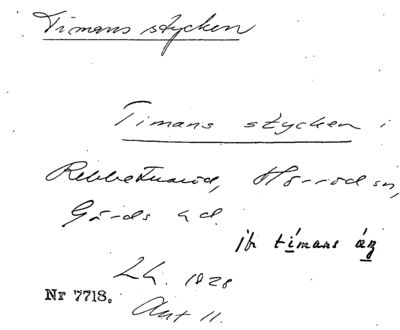 Timans stycken
Timans stycken i
Rebbetuaröd, Hörröd sn,
Gärds hd.
jfr timans äng
LH. 1828
Nr 7718.
Akt 11.